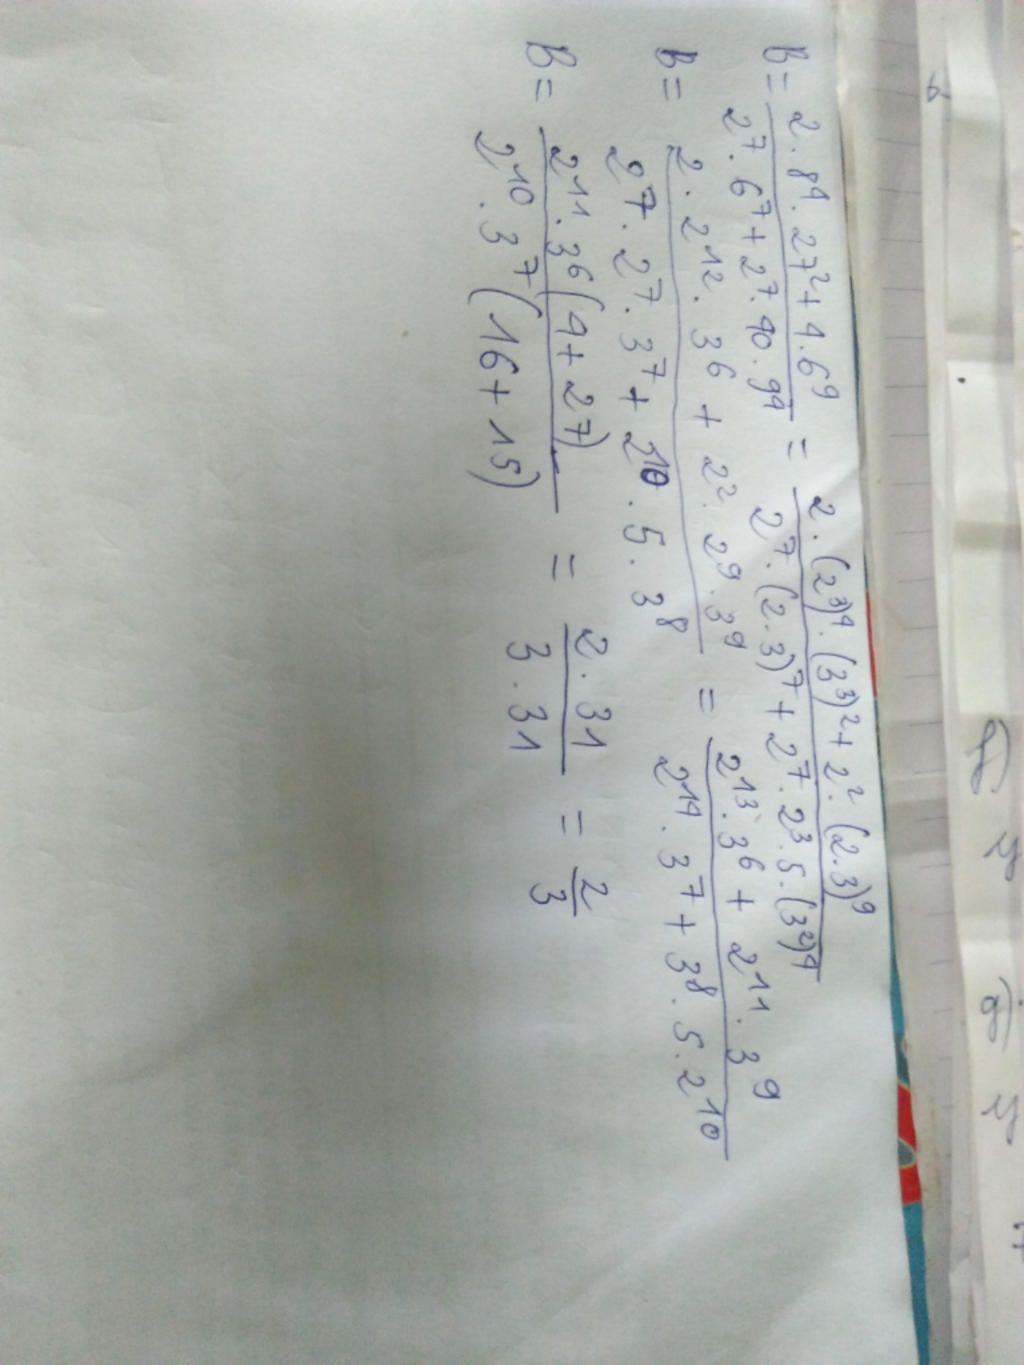 B = \frac{2 \cdot 8^4 \cdot 27^2 + 4 \cdot 6^9}{2^7 \cdot 6^7 + 2^7 \cdot 40 \cdot 9^4} = \frac{2 \cdot (2^3)^4 \cdot (3^3)^2 + 2^2 \cdot (2 \cdot 3)^9}{2^7 \cdot (2 \cdot 3)^7 + 2^7 \cdot 2^3 \cdot 5 \cdot (3^2)^4}
B = \frac{2 \cdot 2^{12} \cdot 3^6 + 2^2 \cdot 2^9 \cdot 3^9}{2^7 \cdot 2^7 \cdot 3^7 + 2^{10} \cdot 5 \cdot 3^8} = \frac{2^{13} \cdot 3^6 + 2^{11} \cdot 3^9}{2^{14} \cdot 3^7 + 3^8 \cdot 5 \cdot 2^{10}}
B = \frac{2^{11} \cdot 3^6 (4 + 27)}{2^{10} \cdot 3^7 (16 + 15)} = \frac{2 \cdot 31}{3 \cdot 31} = \frac{2}{3}